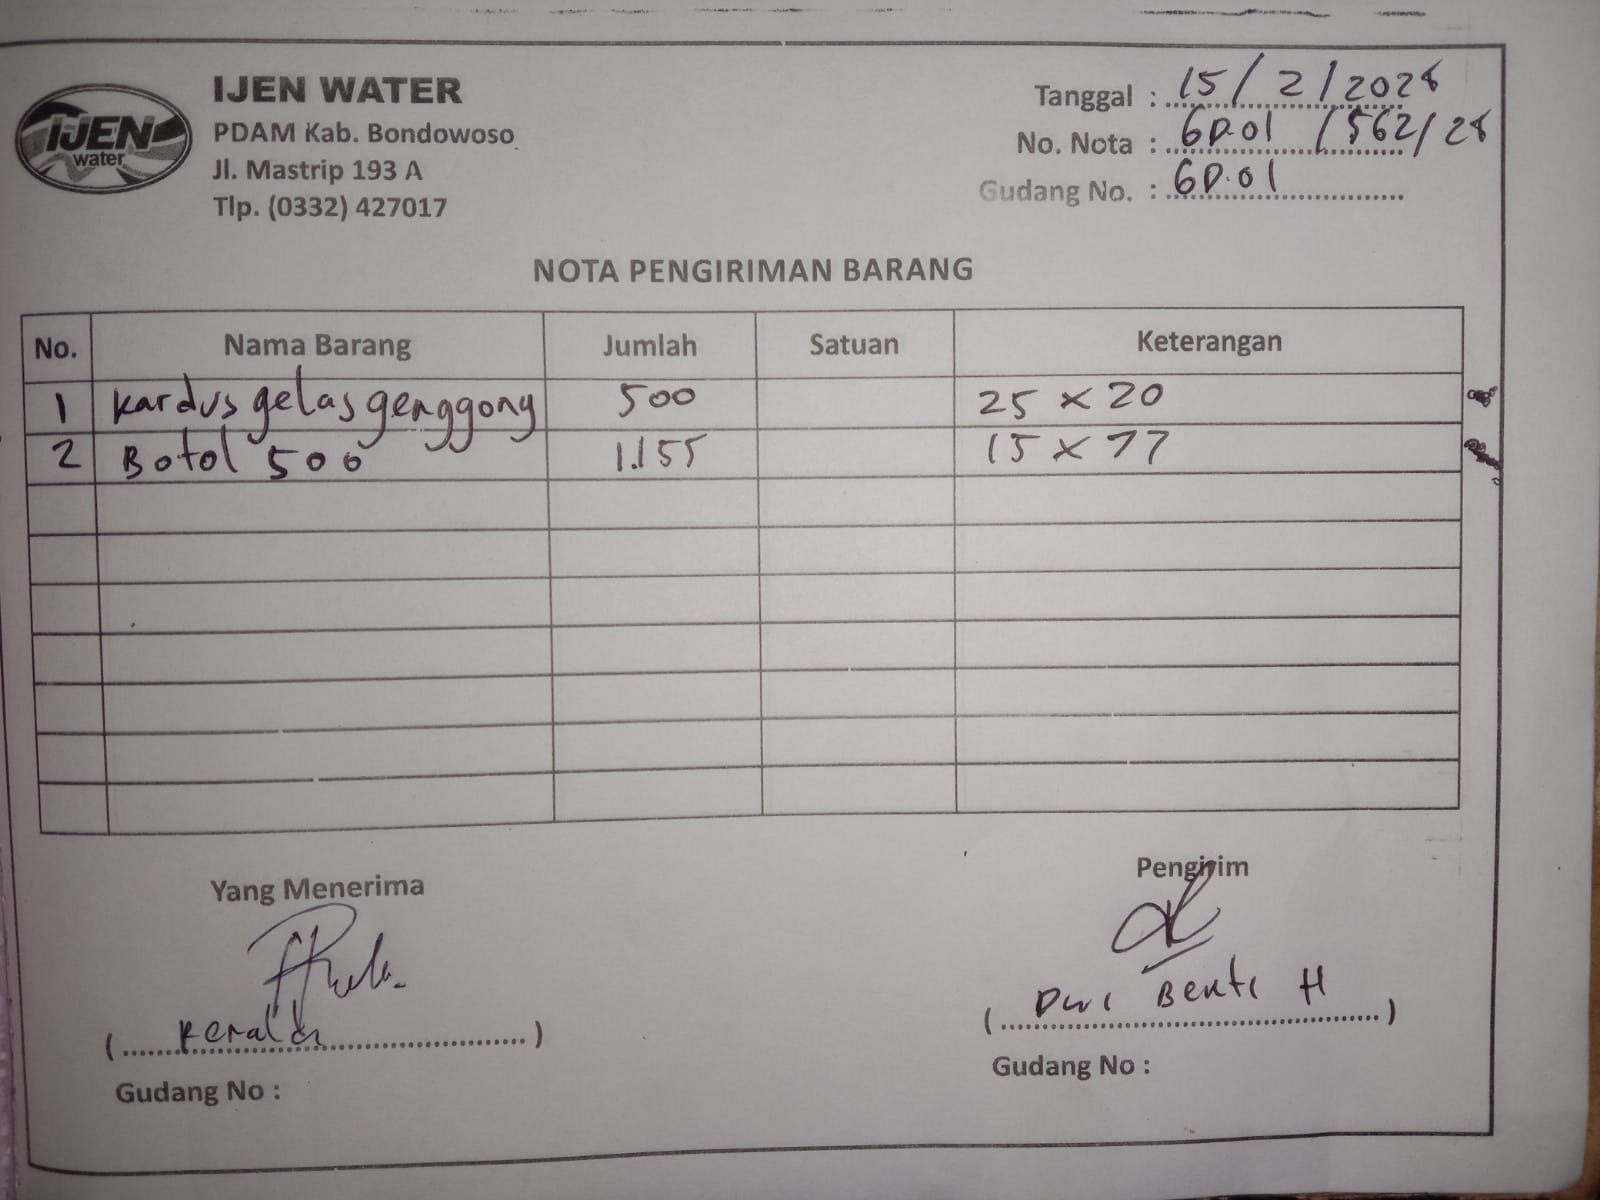 IJEN
water
IJEN WATER
PDAM Kab. Bondowoso
Jl. Mastrip 193 A
Tlp. (0332) 427017
Tanggal : 15/2/2028
No. Nota : GD.01 /562/28
Gudang No. : GD.01
NOTA PENGIRIMAN BARANG
No. Nama Barang Jumlah Satuan Keterangan
1 Kardus gelas genggong 500 25 x 20
2 Botol 500 1.155 15 x 77
Yang Menerima
Pengirim
( Keralda )
( Dwi Bekti H )
Gudang No :
Gudang No :